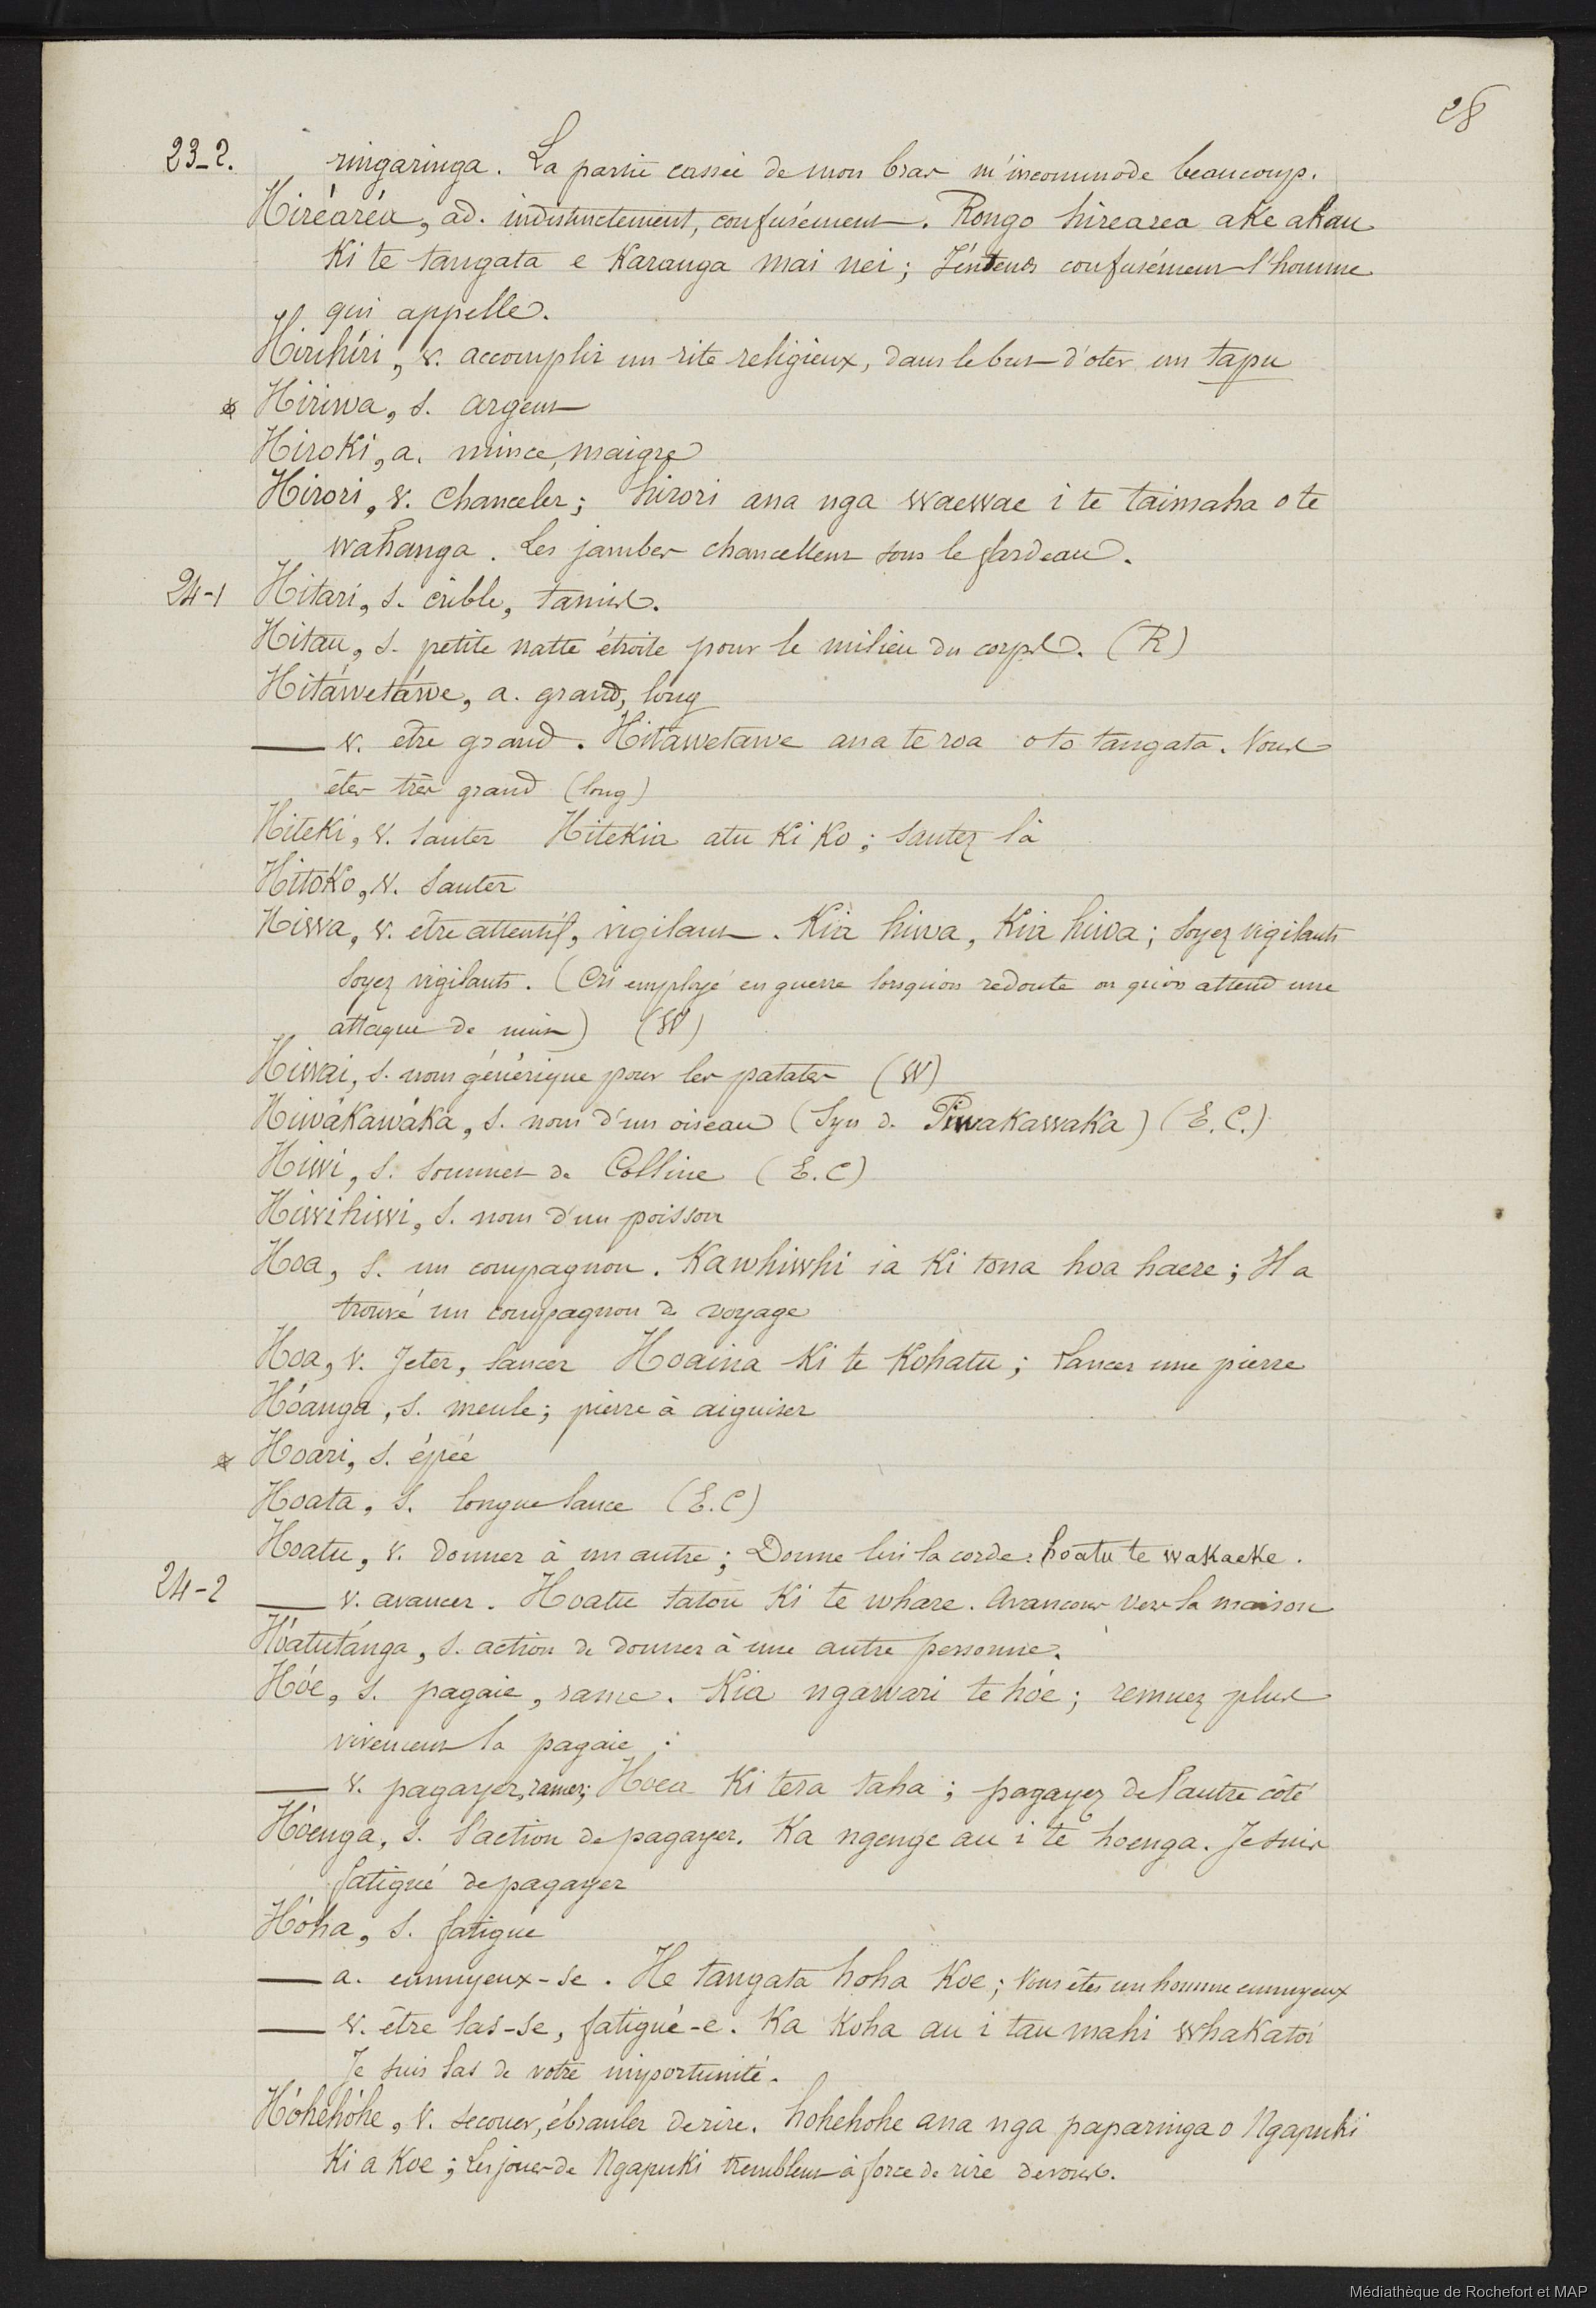 28
23-2. ringaringa. La partie cassée de mon bras m'incommode beaucoup.
Hiréaréa, ad. indistinctement, confusément. Rongo hirearea ake ahau
Ki te tangata e Karanga mai nei; J'entends confusément l'homme
qui appelle.
Hirihiri, v. accomplir un rite religieux, dans le but d'oter un tapu
* Hiriwa, s. argent
Hiroki, a. mince, maigre
Hirori, v. Chanceler; hirori ana nga waewae i te taimaha o te
wahanga. Les jambes chancellent sous le fardeau.
24-1 Hitari, s. crible, tamis.
Hitau, s. petite natte étroite pour le milieu du corps. (R)
Hitáwetáwe, a. grand, long
— v. etre grand. Hitawetawe ana te roa o to tangata. Vous
êtes très grand (long)
Hiteki, v. Sauter Hitekia atu Ki Ko; Sautez là
Hitoko, v. Sauter
Hiwa, v. etre attentif, vigilant. Kia hiwa, Kia hiwa; Soyez vigilants
Soyez vigilants. (Cri employé en guerre lorsqu'on redoute ou qu'on attend une
attaque de nuit) (W)
Hiwai, s. nom générique pour les patates (W)
Hiwákawáka, s. nom d'un oiseau (Syn d. Piwakawaka) (E.C.)
Hiwi, s. Sommet de Colline (E.C)
Hiwihiwi, s. nom d'un poisson
Hoa, s. un compagnon. Kawhiwhi ia Ki tona hoa haere; Il a
trouvé un compagnon de voyage
Hoa, v. Jeter, lancer Hoaina Ki te Kohatu; Lancer une pierre
Hóanga, s. meule; pierre à aiguiser
* Hoari, s. épée
Hoata, s. longue lance (E.C)
Hoatu, v. donner à un autre; Donne lui la corde: hoatu te wakaeke.
24-2 — v. avancer. Hoatu tatou Ki te whare. Avancons vers la maison
Hóatutánga, s. action de donner à une autre personne.
Hóe, s. pagaie, rame. Kia ngawari te hóe; remuez plus
vivement la pagaie:
— v. pagayer, ramer; Hoea Ki tera taha; pagayez de l'autre côté
Hóenga, s. l'action de pagayer. Ka ngenge au i te hoenga. Je suis
fatigué de pagayer
Hóha, s. fatigue
— a. ennuyeux-se. He tangata hoha Koe; Vous êtes un homme ennuyeux
— v. être las-se, fatigué-e. Ka Koha au i tau mahi whakatoi
Je suis las de votre importunité.
Hóhehóhe, v. secouer, ébranler de rire. hohehohe ana nga paparinga o Ngapuki
Ki a Koe; Les joues de Ngapuki tremblent à force de rire de vous.
Médiathèque de Rochefort et MAP